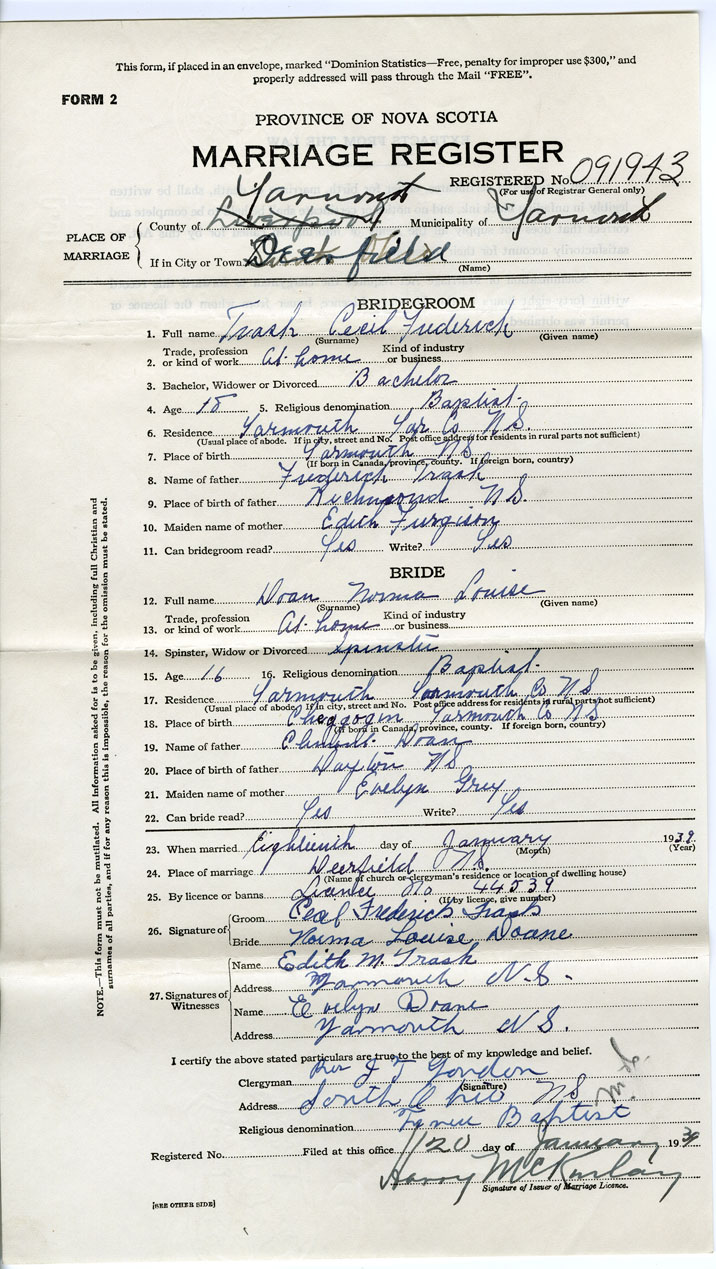 This form, if placed in an envelope, marked “Dominion Statistics—Free, penalty for improper use $300,” and
properly addressed will pass through the Mail “FREE”.
FORM 2
PROVINCE OF NOVA SCOTIA
MARRIAGE REGISTER
REGISTERED No. 091943
(For use of Registrar General only)
Yarmouth
PLACE OF MARRIAGE
County of Liverpool Municipality of Yarmouth
If in City or Town Deerfield
(Name)
BRIDEGROOM
1. Full name Trask Cecil Frederick
(Surname) (Given name)
2. Trade, profession or kind of work At home Kind of industry or business
3. Bachelor, Widower or Divorced Bachelor
4. Age 18 5. Religious denomination Baptist
6. Residence Yarmouth Yar Co N.S.
(Usual place of abode. If in city, street and No. Post office address for residents in rural parts not sufficient)
7. Place of birth Yarmouth NS
(If born in Canada, province, county. If foreign born, country)
8. Name of father Frederick Trask
9. Place of birth of father Richmond N.S.
10. Maiden name of mother Edith Furgison
11. Can bridegroom read? Yes Write? Yes
BRIDE
12. Full name Doan Norma Louise
(Surname) (Given name)
13. Trade, profession or kind of work At home Kind of industry or business
14. Spinster, Widow or Divorced Spinster
15. Age 16 16. Religious denomination Baptist
17. Residence Yarmouth Yarmouth Co NS
(Usual place of abode. If in city, street and No. Post office address for residents in rural parts not sufficient)
18. Place of birth Cheggogin Yarmouth Co NS
(If born in Canada, province, county. If foreign born, country)
19. Name of father Doan
20. Place of birth of father Dayton NS
21. Maiden name of mother Evelyn Grey
22. Can bride read? Yes Write? Yes
23. When married Eighteenth day of January 1939
(Month) (Year)
24. Place of marriage Deerfield N.S.
(Name of church or clergyman's residence or location of dwelling house)
25. By licence or banns Licence No. 44539
(If by licence, give number)
26. Signature of
Groom Cecil Frederick Trask
Bride Norma Louise Doane
27. Signatures of Witnesses
Name Edith M. Trask
Address Yarmouth N.S.
Name Evelyn Doane
Address Yarmouth N.S.
I certify the above stated particulars are true to the best of my knowledge and belief.
Clergyman Rev J T Gordon
(Signature)
Address South Ohio NS
Religious denomination Baptist
Registered No. Filed at this office 20 day of January 1939
Harry McKinlay
Signature of Issuer of Marriage Licence.
[SEE OTHER SIDE]
NOTE.—This form must not be mutilated. All information asked for is to be given, including full Christian and
surnames of all parties, and if for any reason this is impossible, the reason for the omission must be stated.